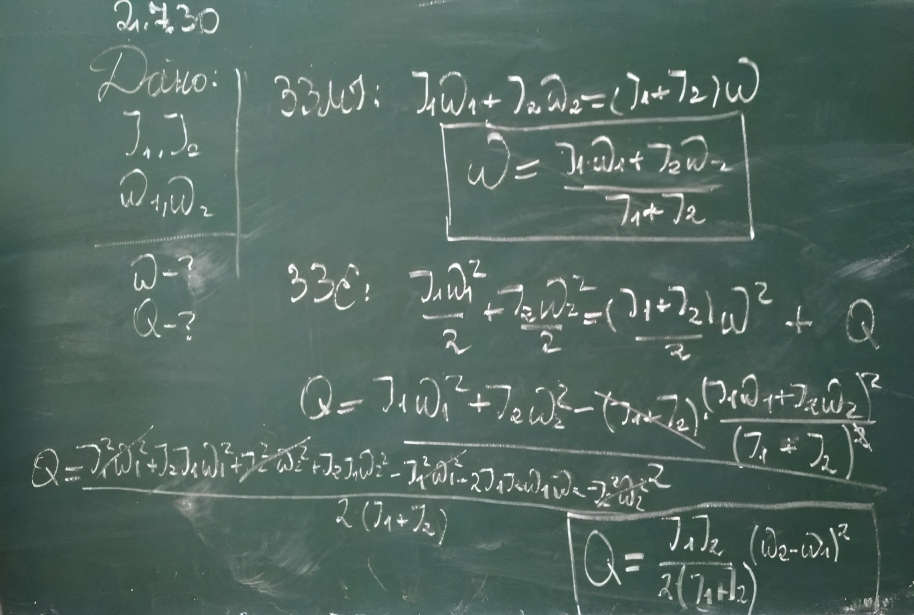 2.7.30
Дано:
J₁, J₂
ω₁, ω₂
ω-?
Q-?
ЗЗМІ: J₁ω₁ + J₂ω₂ = (J₁+J₂)ω
ω = (J₁ω₁ + J₂ω₂)/(J₁+J₂)
ЗЗЄ: J₁ω₁²/2 + J₂ω₂²/2 = (J₁+J₂)ω²/2 + Q
Q = (J₁ω₁² + J₂ω₂² - (J₁+J₂)·(J₁ω₁+J₂ω₂)²/(J₁+J₂)²)/2
Q = (J₁²ω₁² + J₂J₁ω₁² + J₂²ω₂² + J₂J₁ω₂² - J₁²ω₁² - 2J₁J₂ω₁ω₂ - J₂²ω₂²)/2(J₁+J₂)
Q = J₁J₂/2(J₁+J₂) (ω₂-ω₁)²